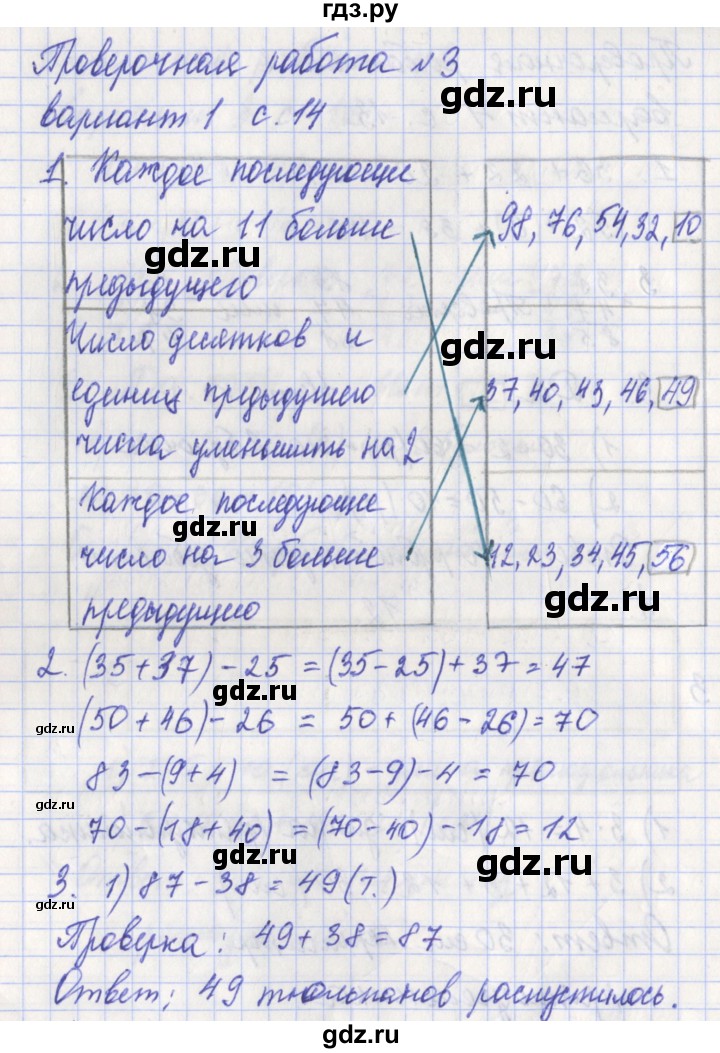 гдз.ру
Проверочная работа №3
вариант 1 с.14
gdz.ru
1. Каждое последующее
число на 11 больше
предыдущего
gdz.ru
98, 76, 54, 32, 10
Число десятков и
единиц предыдущего
числа уменьшить на 2
gdz.ru
37, 40, 43, 46, 49
Каждое последующее
число на 3 больше
предыдущего
gdz.ru
12, 23, 34, 45, 56
gdz.ru
2. (35+37)-25 = (35-25)+37 = 47
gdz.ru
gdz.ru
(50+46)-26 = 50+(46-26) = 70
83-(9+4) = (83-9)-4 = 70
gdz.ru
70-(18+40) = (70-40)-18 = 12
gdz.ru
gdz.ru
3. 1) 87-38 = 49 (т.)
gdz.ru
Проверка: 49+38 = 87
Ответ: 49 тюльпанов распустилось.
gdz.ru
gdz.ru
gdz.ru